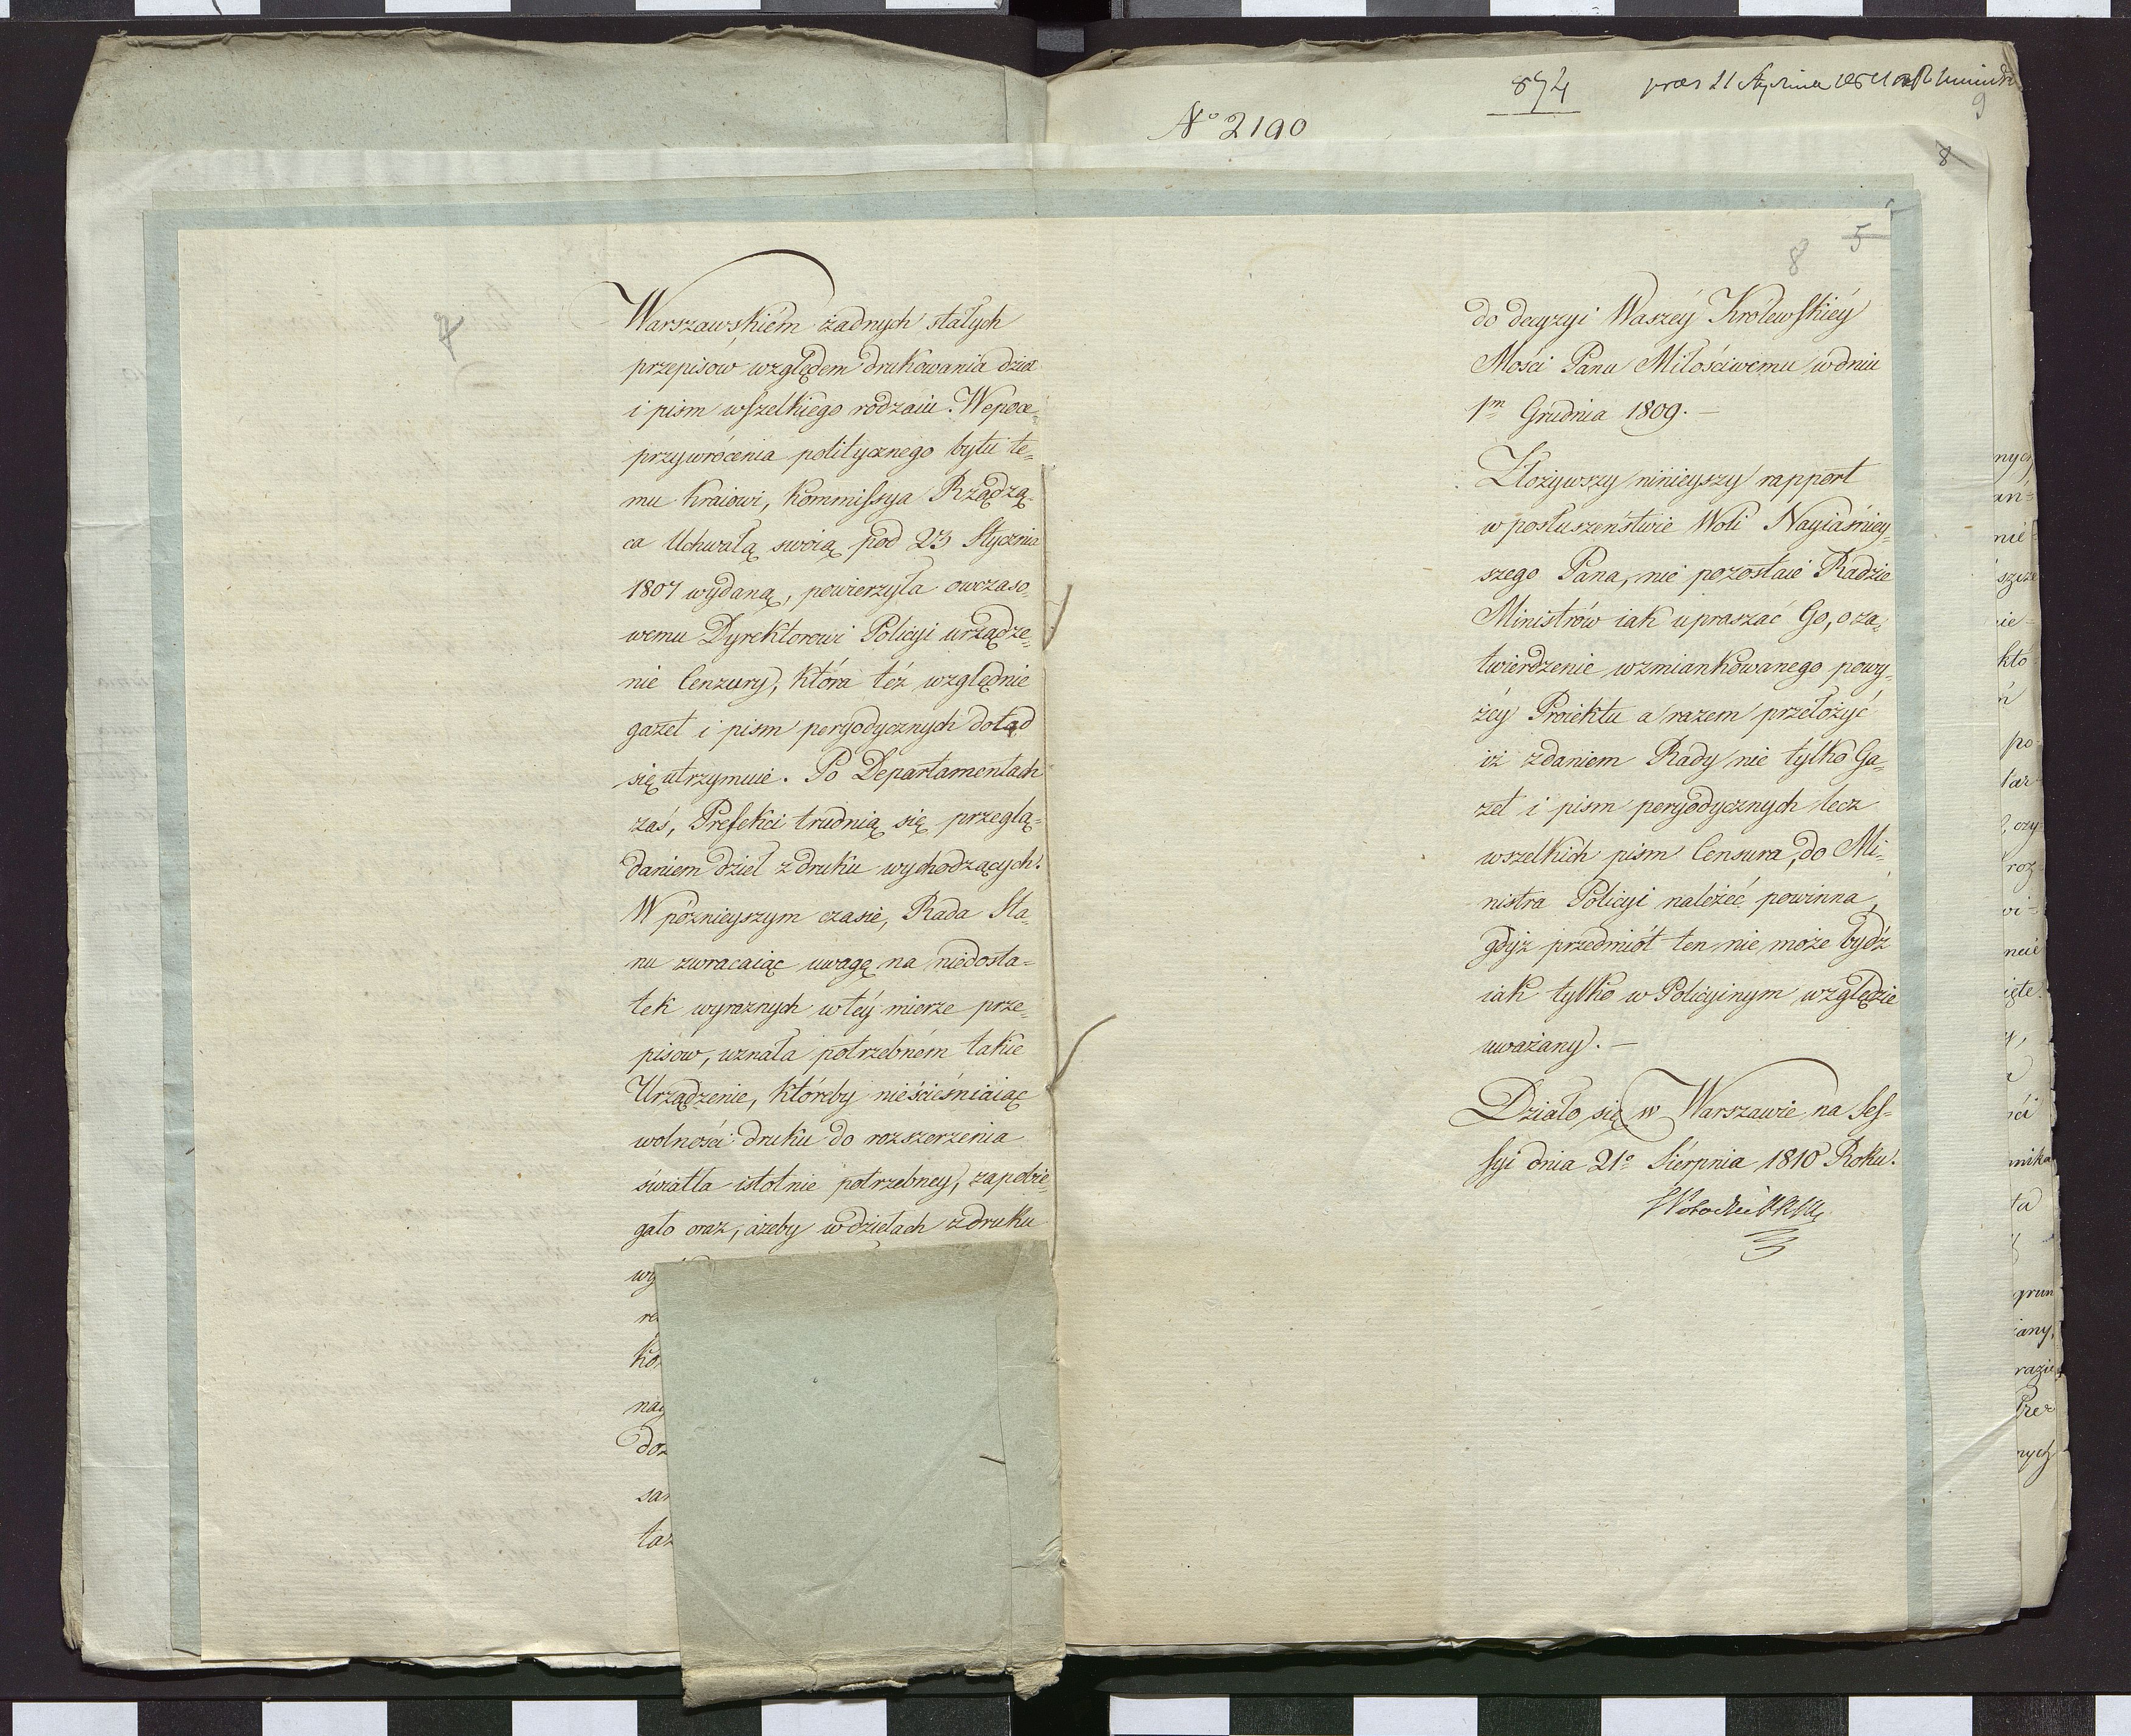 874
No 2190
9
8
5
8
7
Warszawskiem żadnych stałych
przepisow względem drukowania dzieł
i pism wszelkiego rodzaiu. W epoce
przywrócenia politycznego bytu te=
mu kraiowi, Kommissya Rządzą=
ca Uchwałą swoią pod 23 Stycznia
1807 wydaną, powierzyła owczaso=
wemu Dyrektorowi Policyi urządze=
nie Cenzury, która też względnie
gazet i pism peryodycznych dotąd
się utrzymuie. Po Departamentach
zaś, Prefekci trudnią się przeglą=
daniem dzieł z druku wychodzących.
W poznieyszym czasie, Rada Sta=
nu zwracaiąc uwagę na niedosta=
tek wyraznych w téy mierze prze=
pisow, uznała potrzebném takie
Urządzenie, któreby nieścieśniaiąc
wolności druku do rozszerzenia
światła istotnie potrzebney, zapobie=
gało oraz, ażeby w dziełach z druku
wy
re
ko
nay
doz
sa
taz
do decyzyi Waszéy Królewskiéy
Mości Panu Miłościwemu w dniu
1m Grudnia 1809. —
Złożywszy ninieyszy rapport
w posłuszeństwie Woli Nayiaśniey=
szego Pana, nie pozostaie Radzie
Ministrów iak upraszać Go, o za=
twierdzenie wzmiankowanego powy=
żéy Proiektu a razem przełożyć
iż zdaniem Rady nie tylko Ga=
zet i pism peryodycznych lecz
wszelkich pism Censura, do Mi=
nistra Policyi należéć powinna,
gdyż przedmiot ten nie może bydź
iak tylko w Policyinym względzie
uważany. —
Działo się w Warszawie na Ses=
syi dnia 21o Sierpnia 1810 Roku.